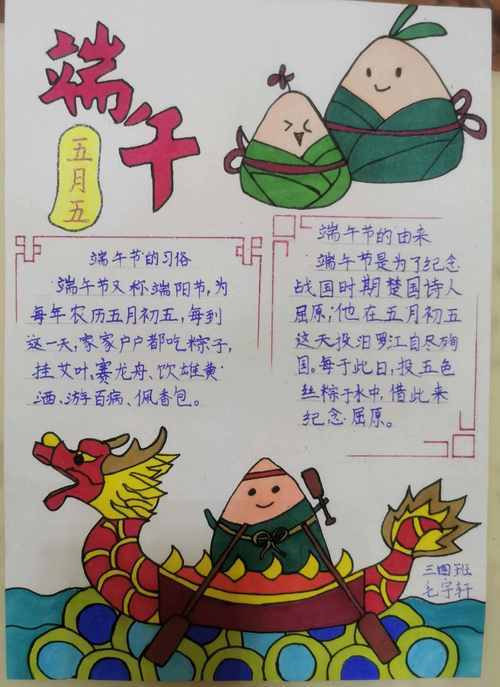 端午
五月五
端午节的习俗
端午节又称端阳节,为
每年农历五月初五,每到
这一天,家家户户都吃粽子,
挂艾叶,赛龙舟、饮雄黄
酒、游百病、佩香包。
端午节的由来
端午节是为了纪念
战国时期楚国诗人
屈原,他在五月初五
这天投汨罗江自尽殉
国。每于此日,投五色
丝粽于水中,借此来
纪念屈原。
三四班
七字轩